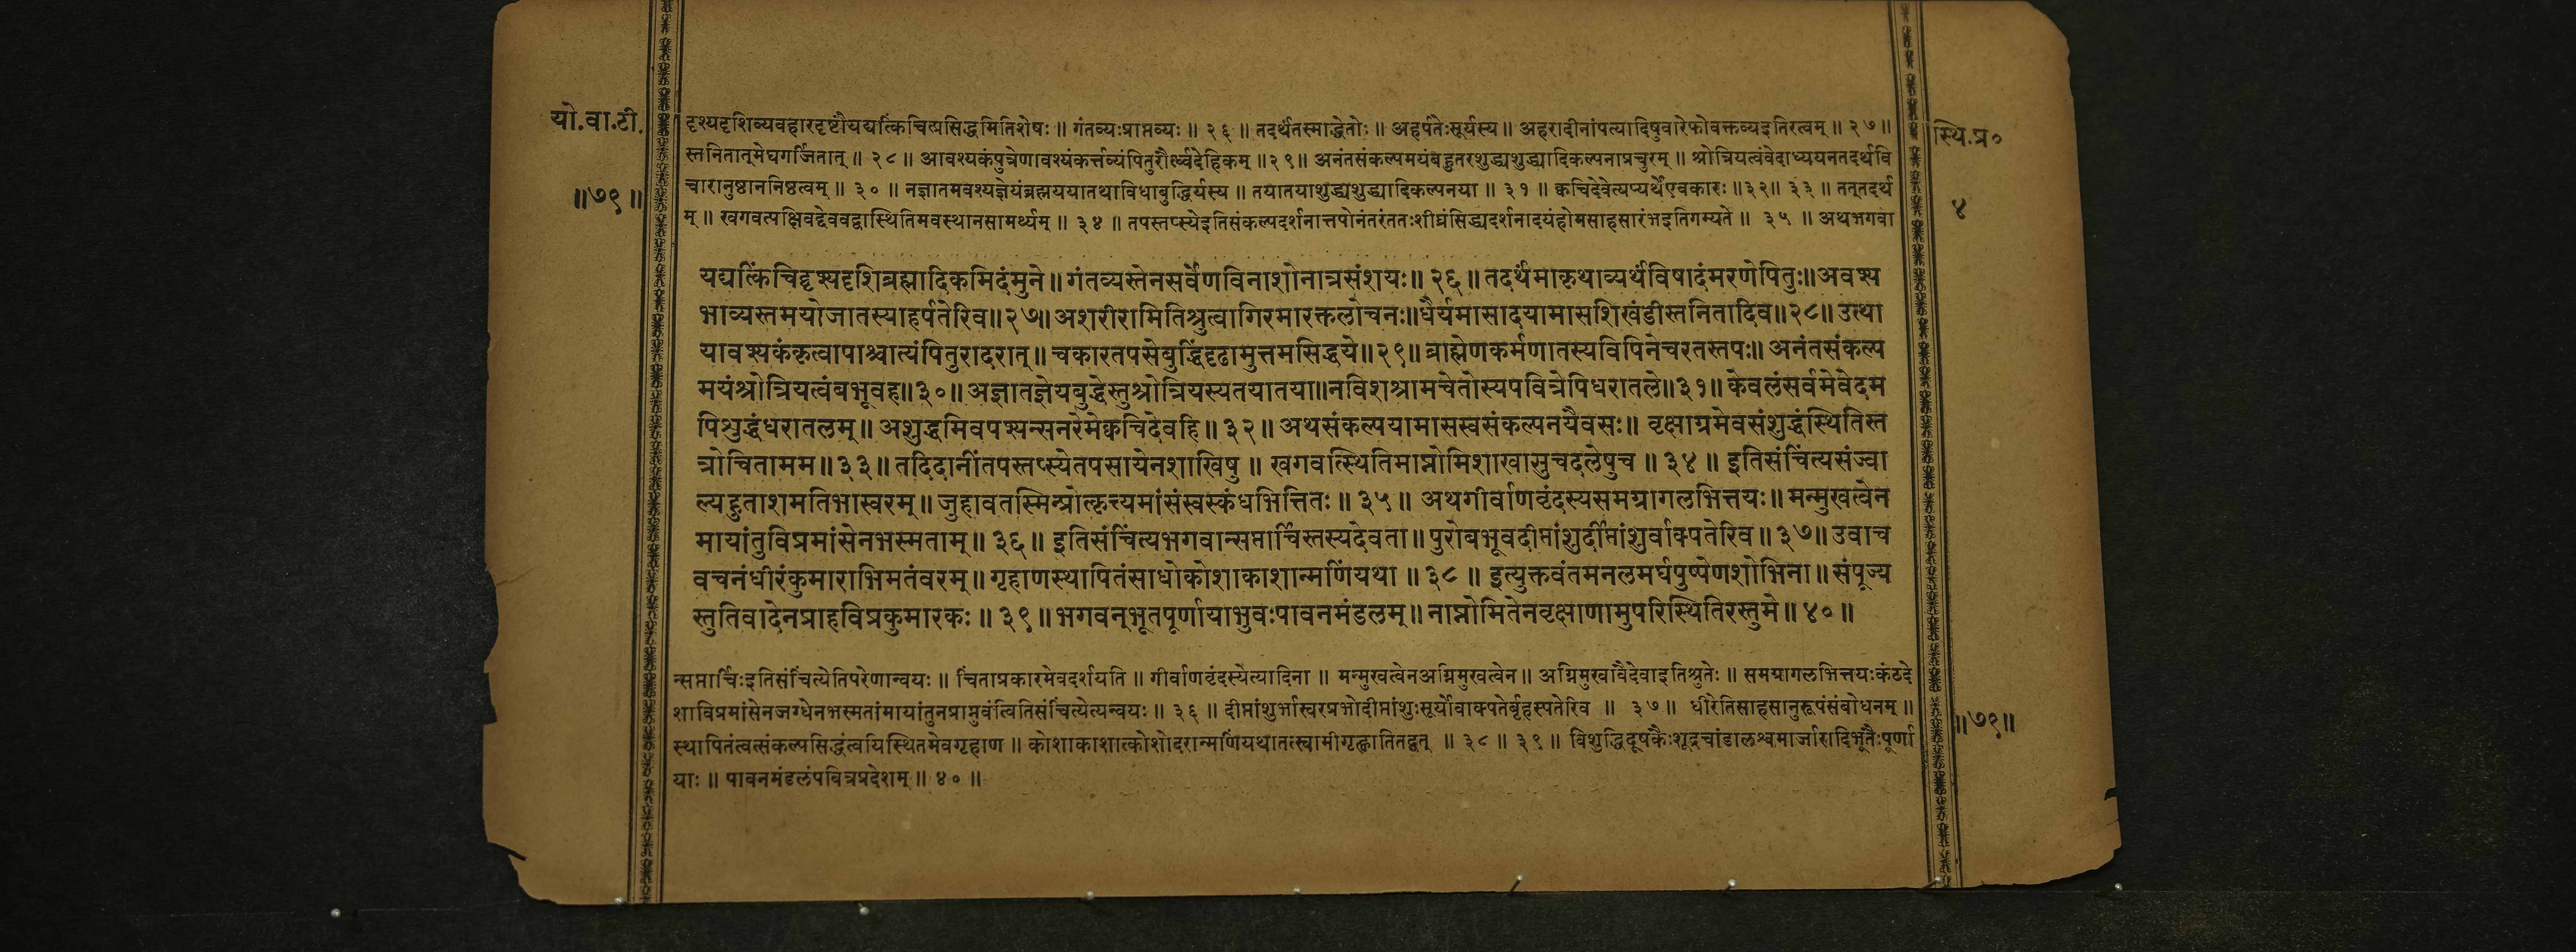 यो.वा.टी.
॥७९॥
दृश्यदृशिव्यवहारदृष्टौयद्यत्किंचित्प्रसिद्धमितिशेषः ॥ गंतव्यःप्राप्तव्यः ॥ २६ ॥ तदर्थंतस्माद्धेतोः ॥ अहर्पतेःसूर्यस्य ॥ अहरादीनांपत्यादिषुवारेफोवक्तव्यइतिरत्वम् ॥ २७॥
स्तनितात्मेघगर्जितात् ॥ २८ ॥ आवश्यकंपुत्रेणावश्यंकर्त्तव्यंपितुरौर्ध्वदेहिकम् ॥२९॥ अनंतसंकल्पमयंबहुतरशुद्ध्यशुद्ध्यादिकल्पनाप्रचुरम् ॥ श्रोत्रियत्वंवेदाध्ययनतदर्थवि
चारानुष्ठाननिष्ठत्वम् ॥ ३० ॥ नज्ञातमवश्यज्ञेयंब्रह्मययातथाविधाबुद्धिर्यस्य ॥ तयातयाशुद्ध्यशुद्ध्यादिकल्पनया ॥ ३१ ॥ क्वचिदेवेत्यप्यर्थेएवकारः ॥३२॥ ३३ ॥ तत्तदर्थ
म् ॥ खगवत्पक्षिवद्देववद्वास्थितिमवस्थानसामर्थ्यम् ॥ ३४ ॥ तपस्तप्स्येइतिसंकल्पदर्शनात्तपोनंतरंततःशीघ्रंसिद्ध्यदर्शनादयंहोमसाहसारंभइतिगम्यते ॥ ३५ ॥ अथभगवा
स्थि.प्र०
४
यद्यत्किंचिद्दृश्यदृशिब्रह्मादिकमिदंमुने॥गंतव्यस्तेनसर्वेणविनाशोनात्रसंशयः॥२६॥तदर्थंमाकृथाव्यर्थंविषादंमरणेपितुः॥अवश्य
भाव्यस्तमयोजातस्याहर्पतेरिव॥२७॥अशरीरामितिश्रुत्वागिरमारक्तलोचनः॥धैर्यमासादयामासशिखंडीस्तनितादिव॥२८॥उत्था
यावश्यकंकृत्वापाश्चात्यंपितुरादरात्॥चकारतपसेबुद्धिंदृढामुत्तमसिद्धये॥२९॥ब्राह्मेणकर्मणातस्यविपिनेचरतस्तपः॥अनंतसंकल्प
मयंश्रोत्रियत्वंबभूवह॥३०॥अज्ञातज्ञेयबुद्धेस्तुश्रोत्रियस्यतयातया॥नविशश्रामचेतोस्यपवित्रेपिधरातले॥३१॥केवलंसर्वमेवेदम
पिशुद्धंधरातलम्॥अशुद्धमिवपश्यन्सनरेमेक्वचिदेवहि॥३२॥अथसंकल्पयामासस्वसंकल्पनयैवसः॥वृक्षाग्रमेवसंशुद्धंस्थितिस्त
त्रोचितामम॥३३॥तदिदानींतपस्तप्स्येतपसायेनशाखिषु ॥ खगवत्स्थितिमाप्नोमिशाखासुचदलेषुच ॥ ३४ ॥ इतिसंचिंत्यसंज्वा
ल्यहुताशमतिभास्वरम्॥जुहावतस्मिन्प्रोत्कृत्त्यमांसंस्वस्कंधभित्तितः॥३५॥ अथगीर्वाणवृंदस्यसमग्रागलभित्तयः॥मन्मुखत्वेन
मायांतुविप्रमांसेनभस्मताम्॥३६॥ इतिसंचिंत्यभगवान्सप्तार्चिस्तस्यदेवता॥पुरोबभूवदीप्तांशुर्दीप्तांशुर्वाक्पतेरिव॥३७॥उवाच
वचनंधीरंकुमाराभिमतंवरम्॥गृहाणस्थापितंसाधोकोशाकाशान्मणिंयथा ॥३८॥ इत्युक्तवंतमनलमर्घपुष्पेणशोभिना॥संपूज्य
स्तुतिवादेनप्राहविप्रकुमारकः॥३९॥भगवन्भूतपूर्णायाभुवःपावनमंडलम्॥नाप्नोमितेनवृक्षाणामुपरिस्थितिरस्तुमे॥४०॥
न्सप्तार्चिःइतिसंचिंत्येतिपरेणान्वयः ॥ चिंताप्रकारमेवदर्शयति ॥ गीर्वाणवृंदस्येत्यादिना ॥ मन्मुखत्वेनअग्निमुखत्वेन॥ अग्निमुखावैदेवाइतिश्रुतेः ॥ समग्रागलभित्तयःकंठदे
शाविप्रमांसेनजग्धेनभस्मतांमायांतुनप्राप्नुवंत्वितिसंचिंत्येत्यन्वयः ॥ ३६ ॥ दीप्तांशुर्भास्वरप्रभोदीप्तांशुःसूर्योवाक्पतेर्बृहस्पतेरिव ॥ ३७ ॥ धीरेतिसाहसानुरूपंसंबोधनम् ॥
स्थापितंत्वत्संकल्पसिद्धंत्वयिस्थितमेवगृहाण ॥ कोशाकाशात्कोशोदरान्मणिंयथातत्स्वामीगृह्णातितद्वत् ॥ ३८ ॥ ३९ ॥ विशुद्धिदूषकैःशूद्रचांडालश्वमार्जारादिभूतैःपूर्णा
याः ॥ पावनमंडलंपवित्रप्रदेशम् ॥ ४० ॥
॥७९॥